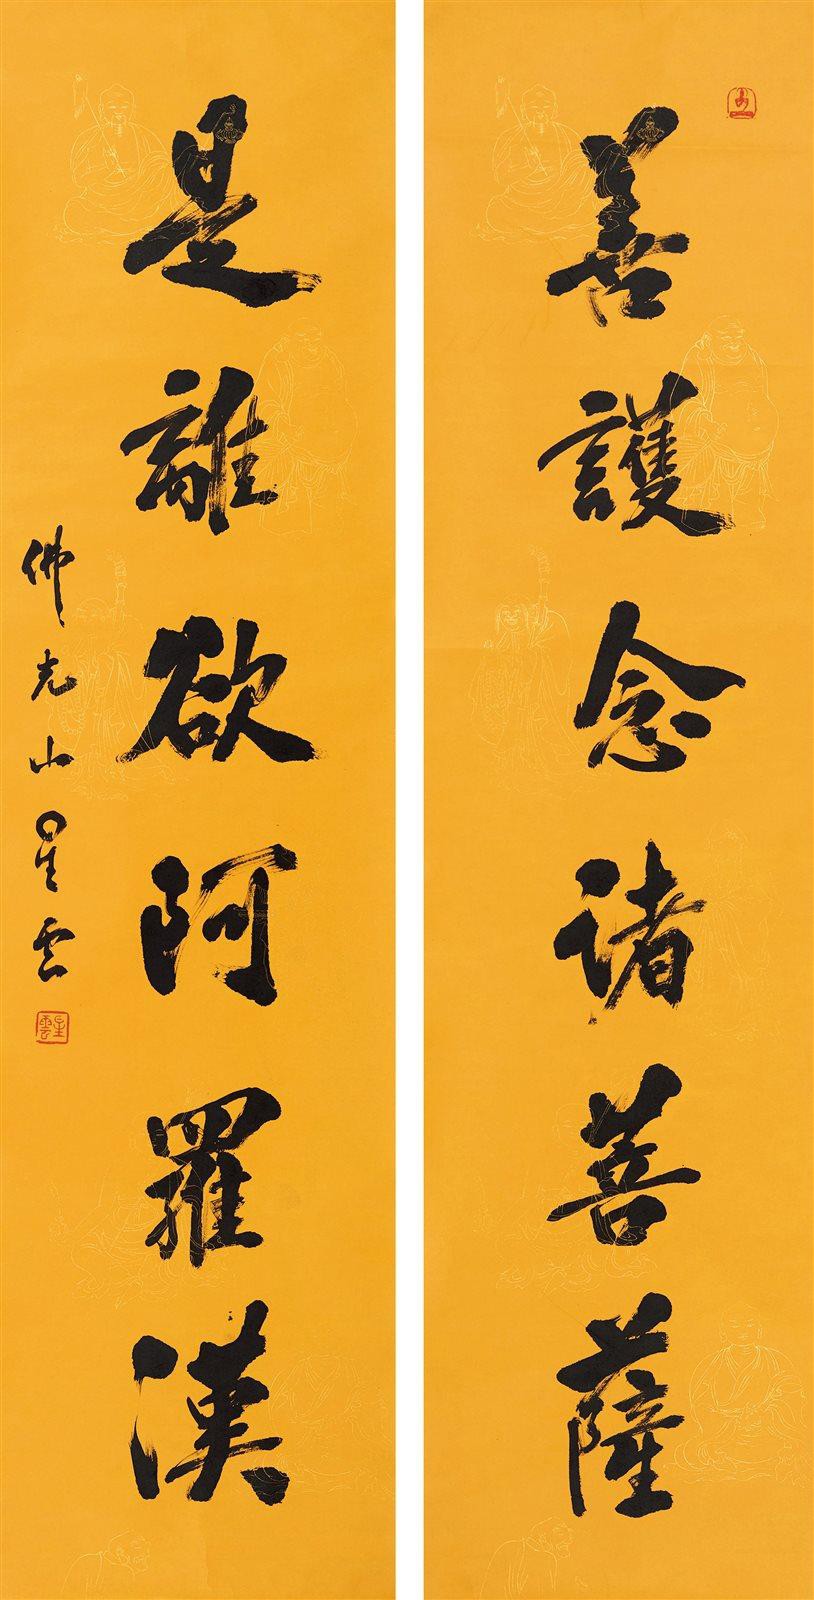 善護念諸菩薩
是離欲阿羅漢
佛光山星雲
星雲